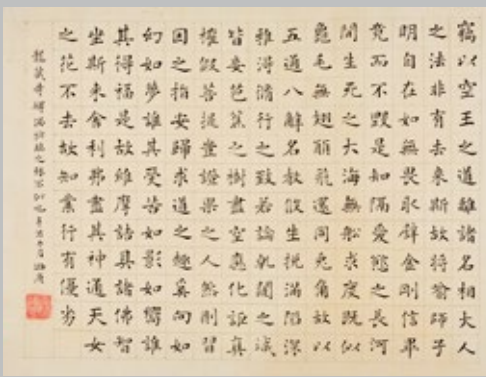 竊以空王之道離諸名相大人
之法非有去來斯故將喻師子
明自在如無畏取譬金剛信畢
竟而不毀是知隔愛慾之長河
間生死之大海無船求度既似
龜毛無翅願飛還同兔角故以
五道八解名教攸生滿陷深
雖得脩行之致若論乾闥之城
皆妄芭蕉之樹盡空應化詎真
權假菩提證果之人然則習
因之指安歸求道之趣奚向如
幻如夢誰其受苦如影如響誰
其得福是故維摩詰具諸佛智
坐斯來舍利弗盡其神通天女
之花不去故知業行有優劣
龍藏寺碑